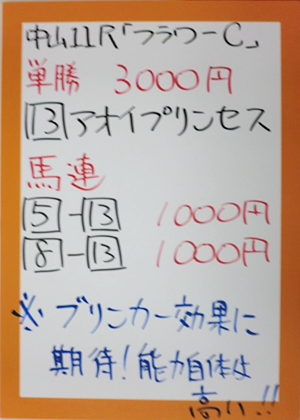 中山11R「フラワーC」
単勝 3000円
13 アオイプリンセス
馬連
5-13 1000円
8-13 1000円
※ブリンカー効果に
期待!能力自体は
高い!!